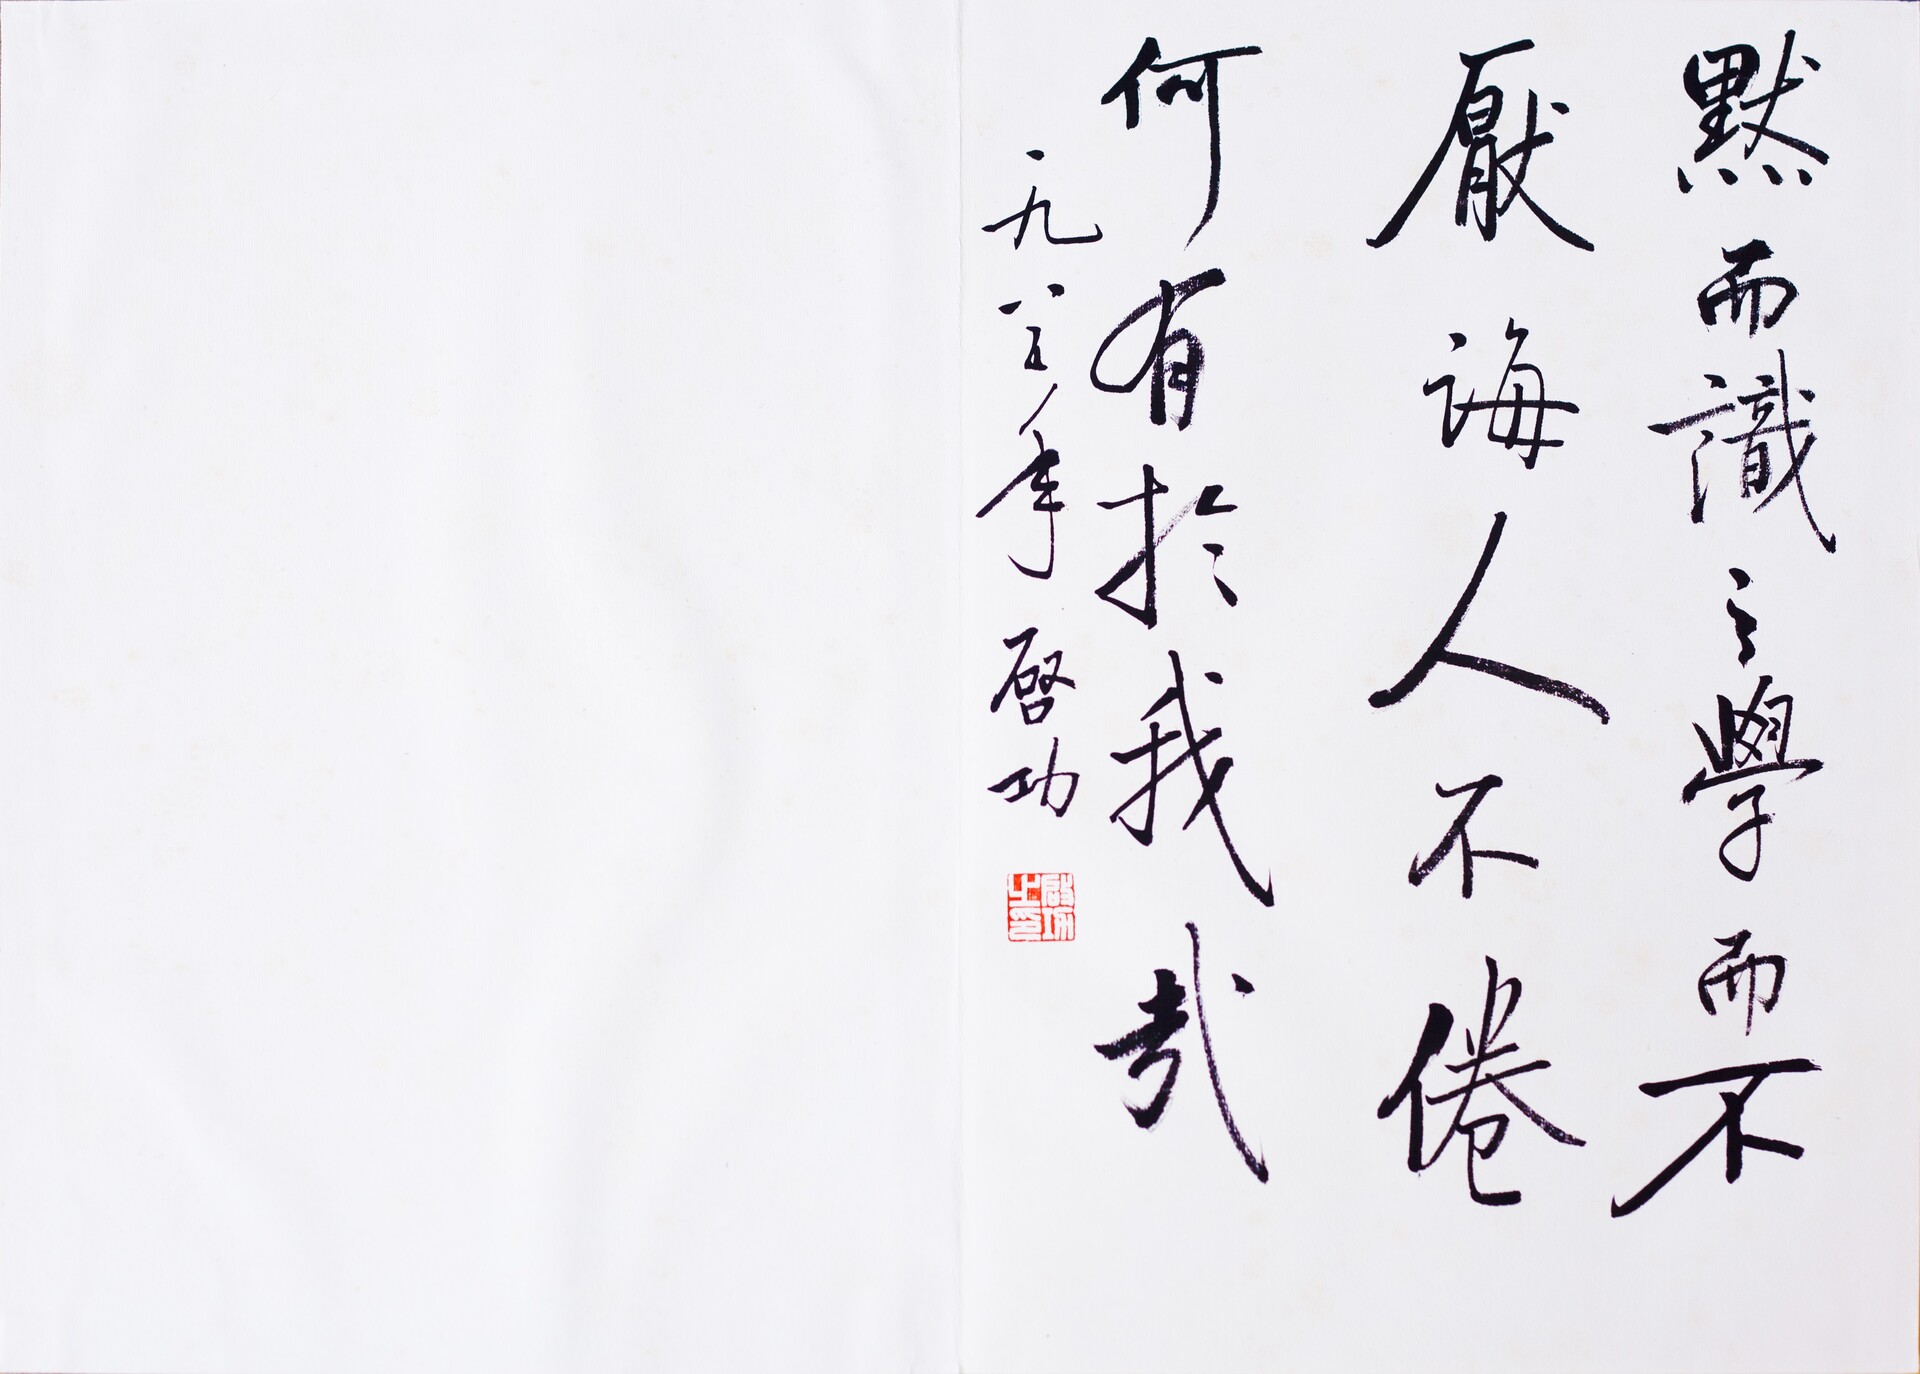 默而識之學而不
厭誨人不倦
何有於我哉
一九八五年 啓功
啓功之印